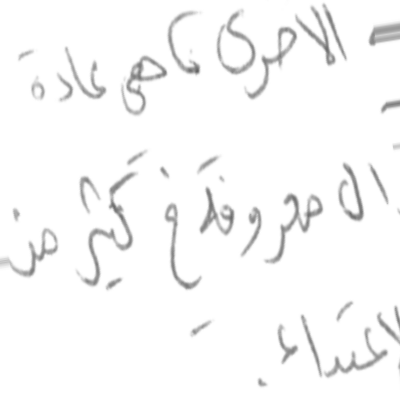 الاخرى كما هى عادة
المعروفة فى كثير من
الاعتداء.